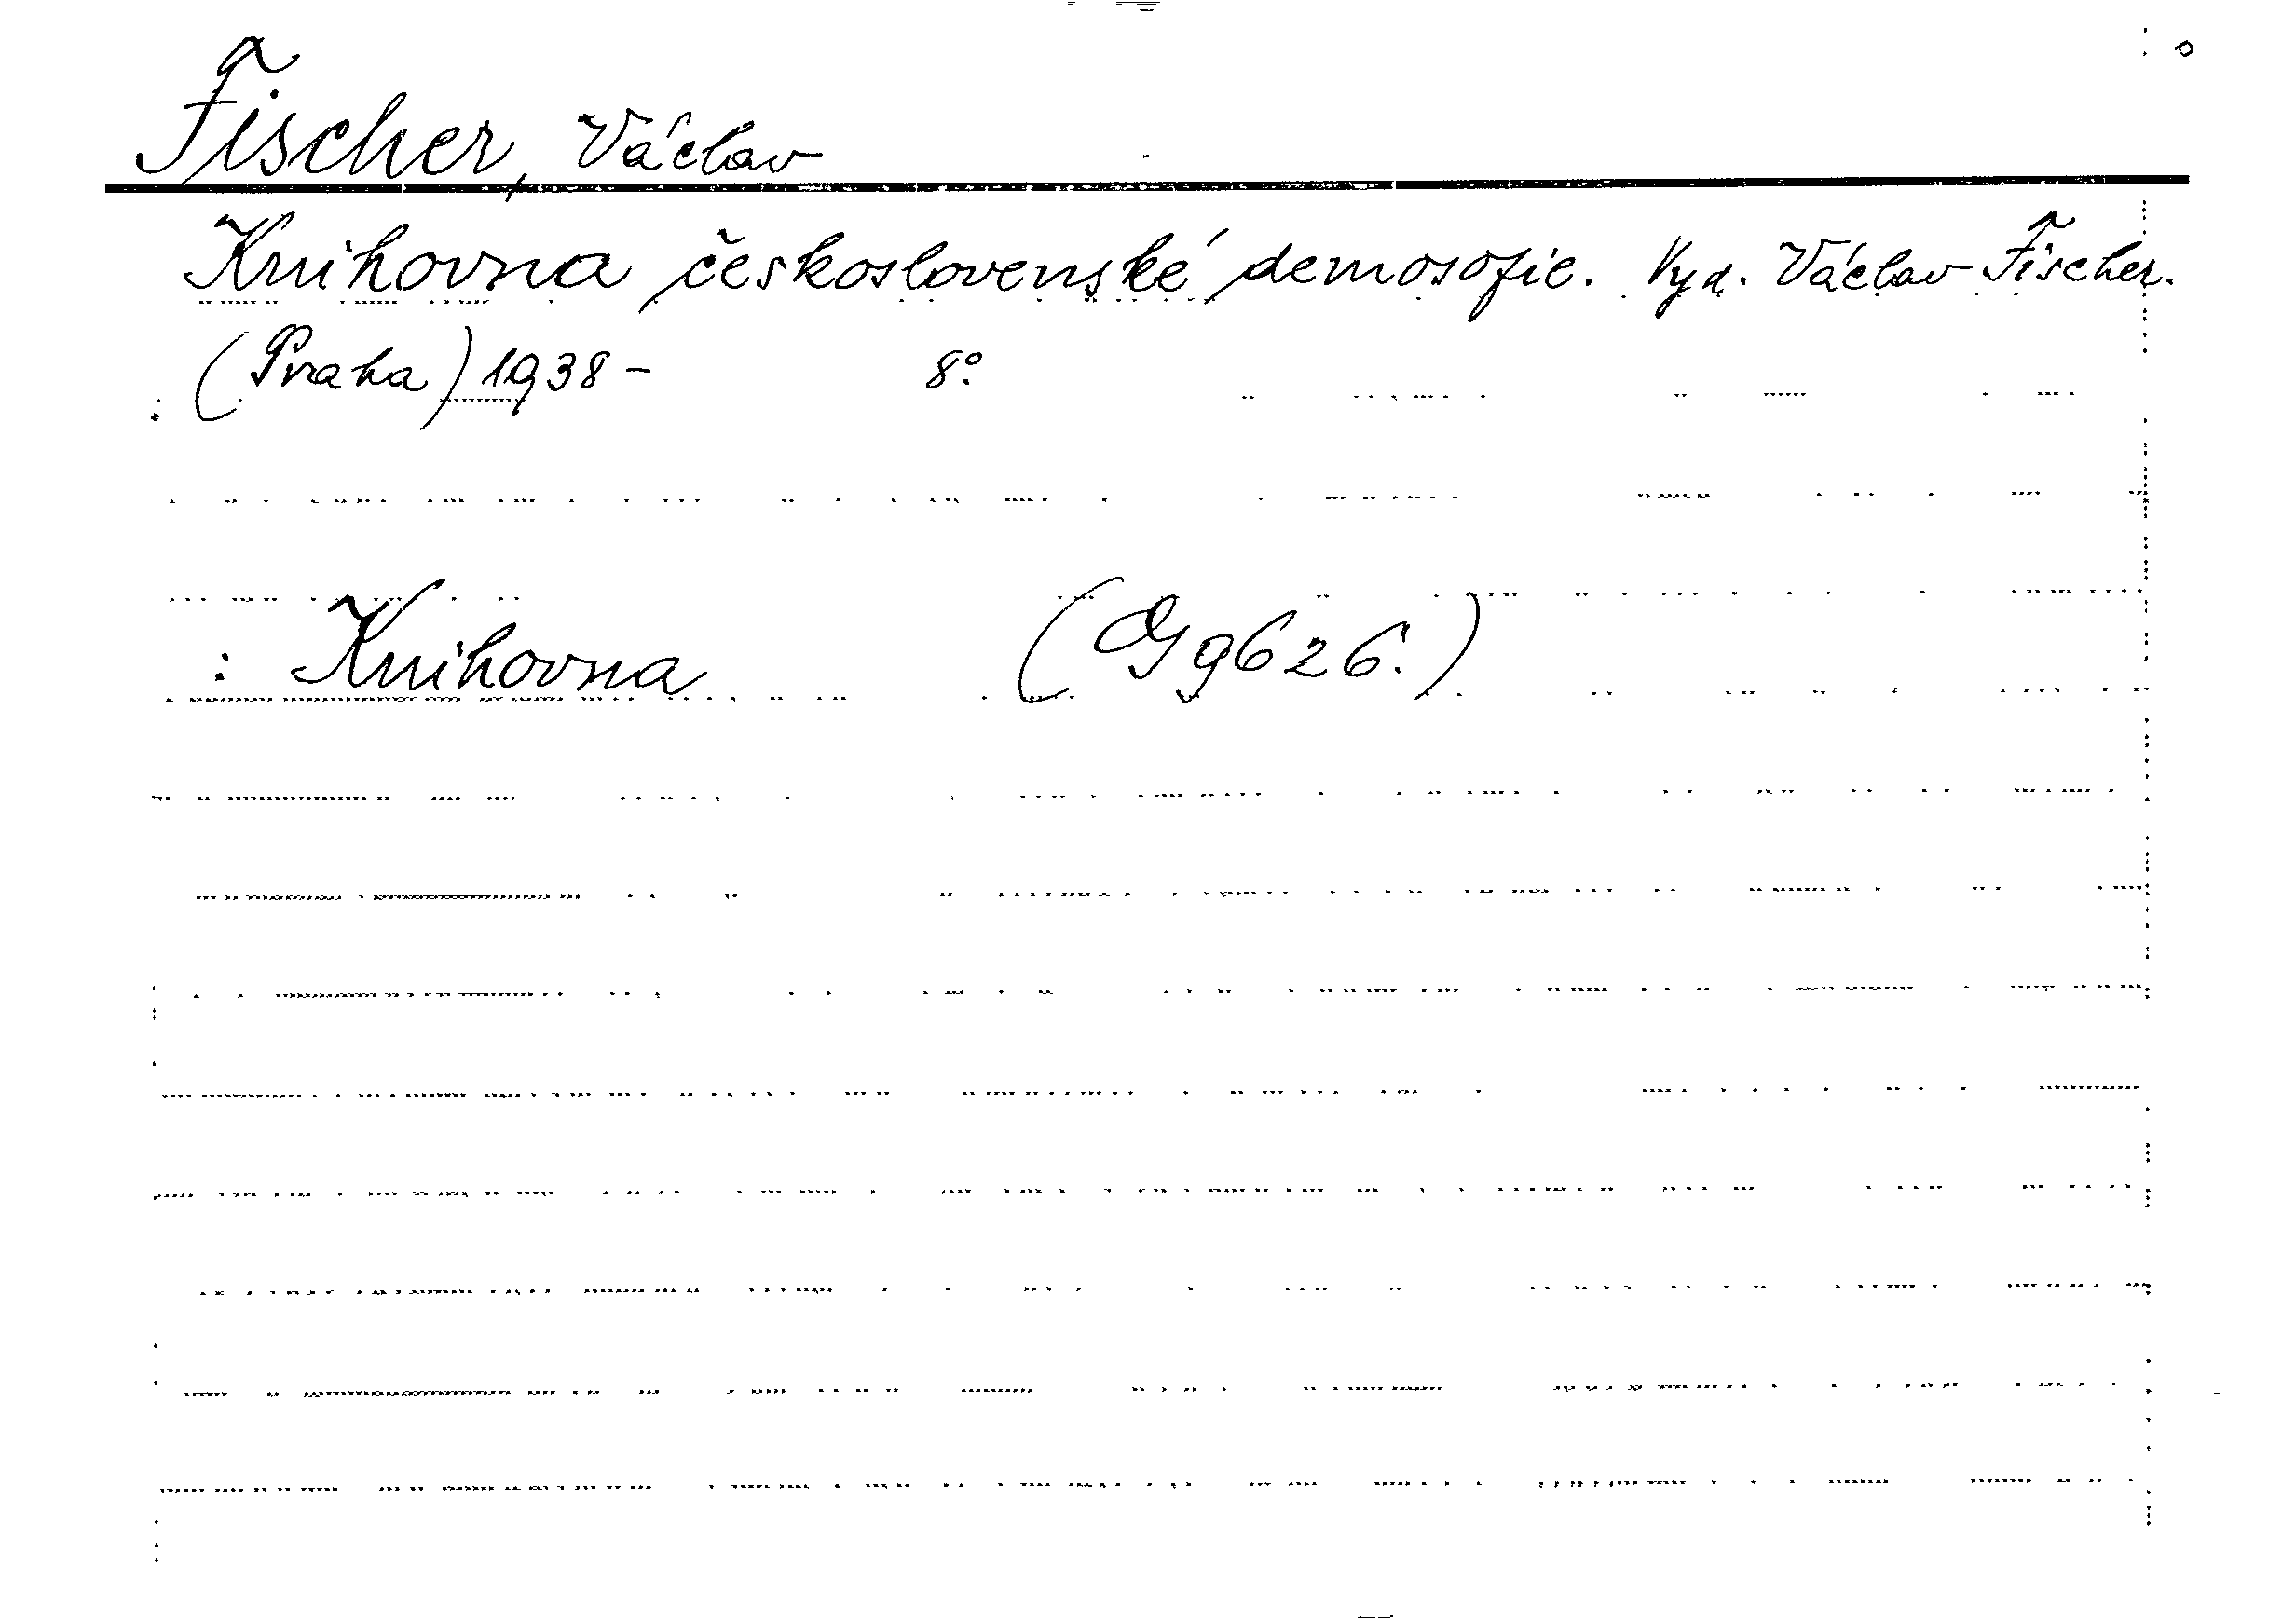 Fischer, Václav
Knihovna československé demosofie. Vyd. Václav Fischer.
(Praha) 1938- 8°.
: Knihovna (G 9626.)